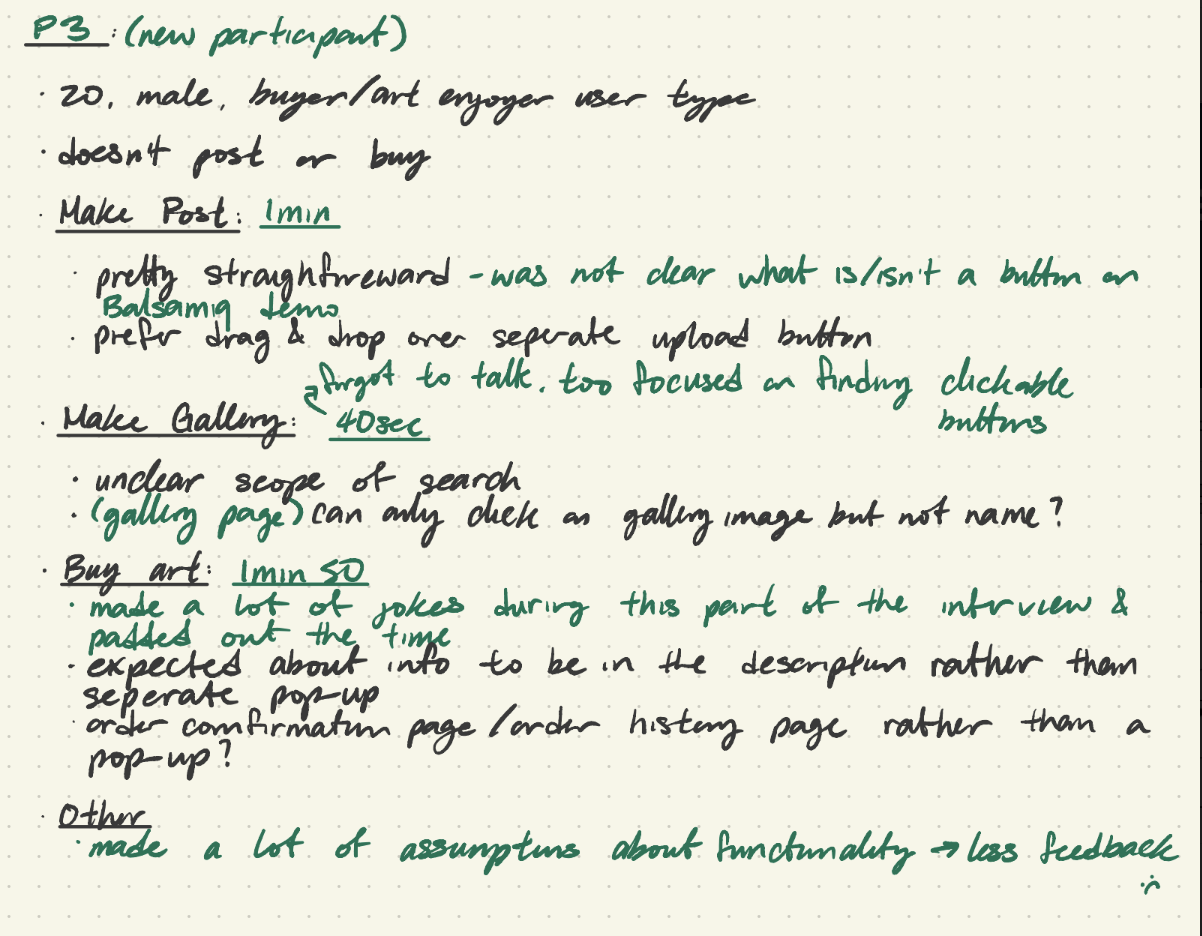 P3: (new participant)
· 20, male, buyer/art enjoyer user type
· doesn't post or buy
· Make Post: 1min
· pretty straighforeward - was not clear what is/isn't a button on
Balsamiq demo
· prefer drag & drop over seperate upload button
forgot to talk. too focused on finding clickable
buttons
· Make Gallery: 40sec
· unclear scope of search
· (gallery page) can only click on gallery image but not name?
· Buy art: 1min 50
· made a lot of jokes during this part of the interview &
padded out the time
· expected about info to be in the description rather than
seperate pop-up
· order confirmation page/order history page rather than a
pop-up?
· Other
· made a lot of assumptions about functionality → less feedback
:(